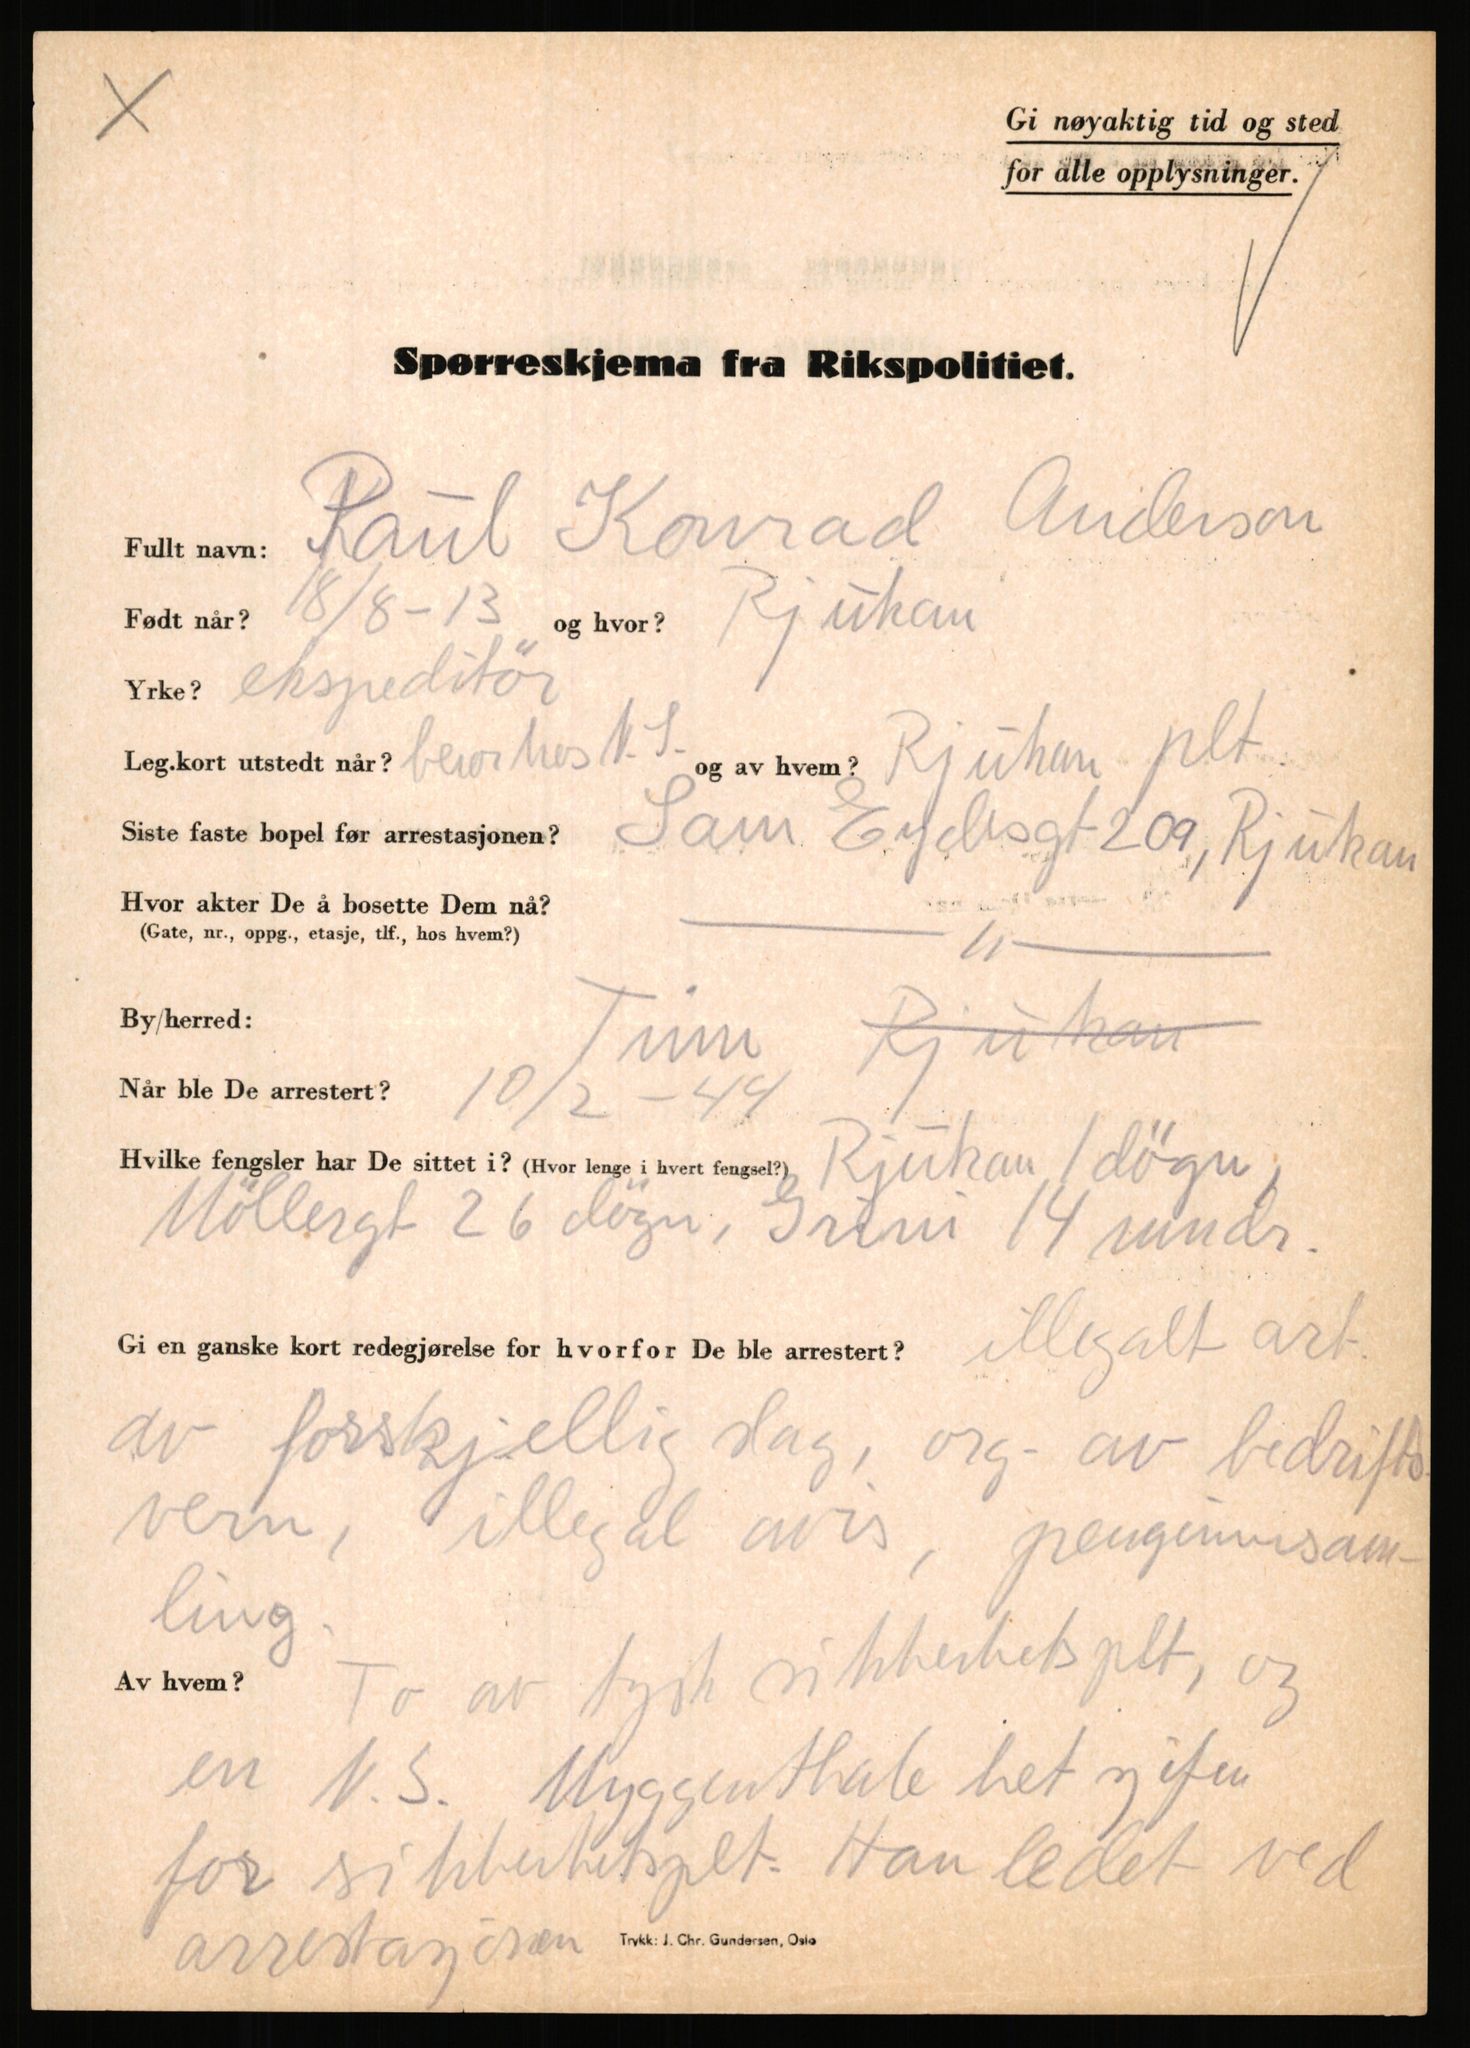 Gi nøyaktig tid og sted
for alle opplysninger.
Spørreskjema fra Rikspolitiet.
Fullt navn: Paul Konrad Anderson
Født når? 18/8-13 og hvor? Rjukan
Yrke? ekspeditör
Leg.kort utstedt når? beror hos N.S. og av hvem? Rjukan plt.
Siste faste bopel før arrestasjonen? Sam Eydesgt 209, Rjukan
Hvor akter De å bosette Dem nå? — 11 —
(Gate, nr., oppg., etasje, tlf., hos hvem?)
By/herred: Tinn Rjukan
Når ble De arrestert? 10/2-44
Hvilke fengsler har De sittet i? (Hvor lenge i hvert fengsel?) Rjukan 1 dögn,
Möllergt 26 dögn, Grini 14 mndr.
Gi en ganske kort redegjørelse for hvorfor De ble arrestert? illegalt arb.
av forskjellig slag, org. av bedrifts-
vern, illegal avis, pengeinnsam-
ling.
Av hvem? To av tysk sikkerhetsplt, og
en N.S. Myggenthale het sjefen
for sikkerhetsplt. Han ledet ved
arrestasjonen
Trykk: J. Chr. Gundersen, Oslo